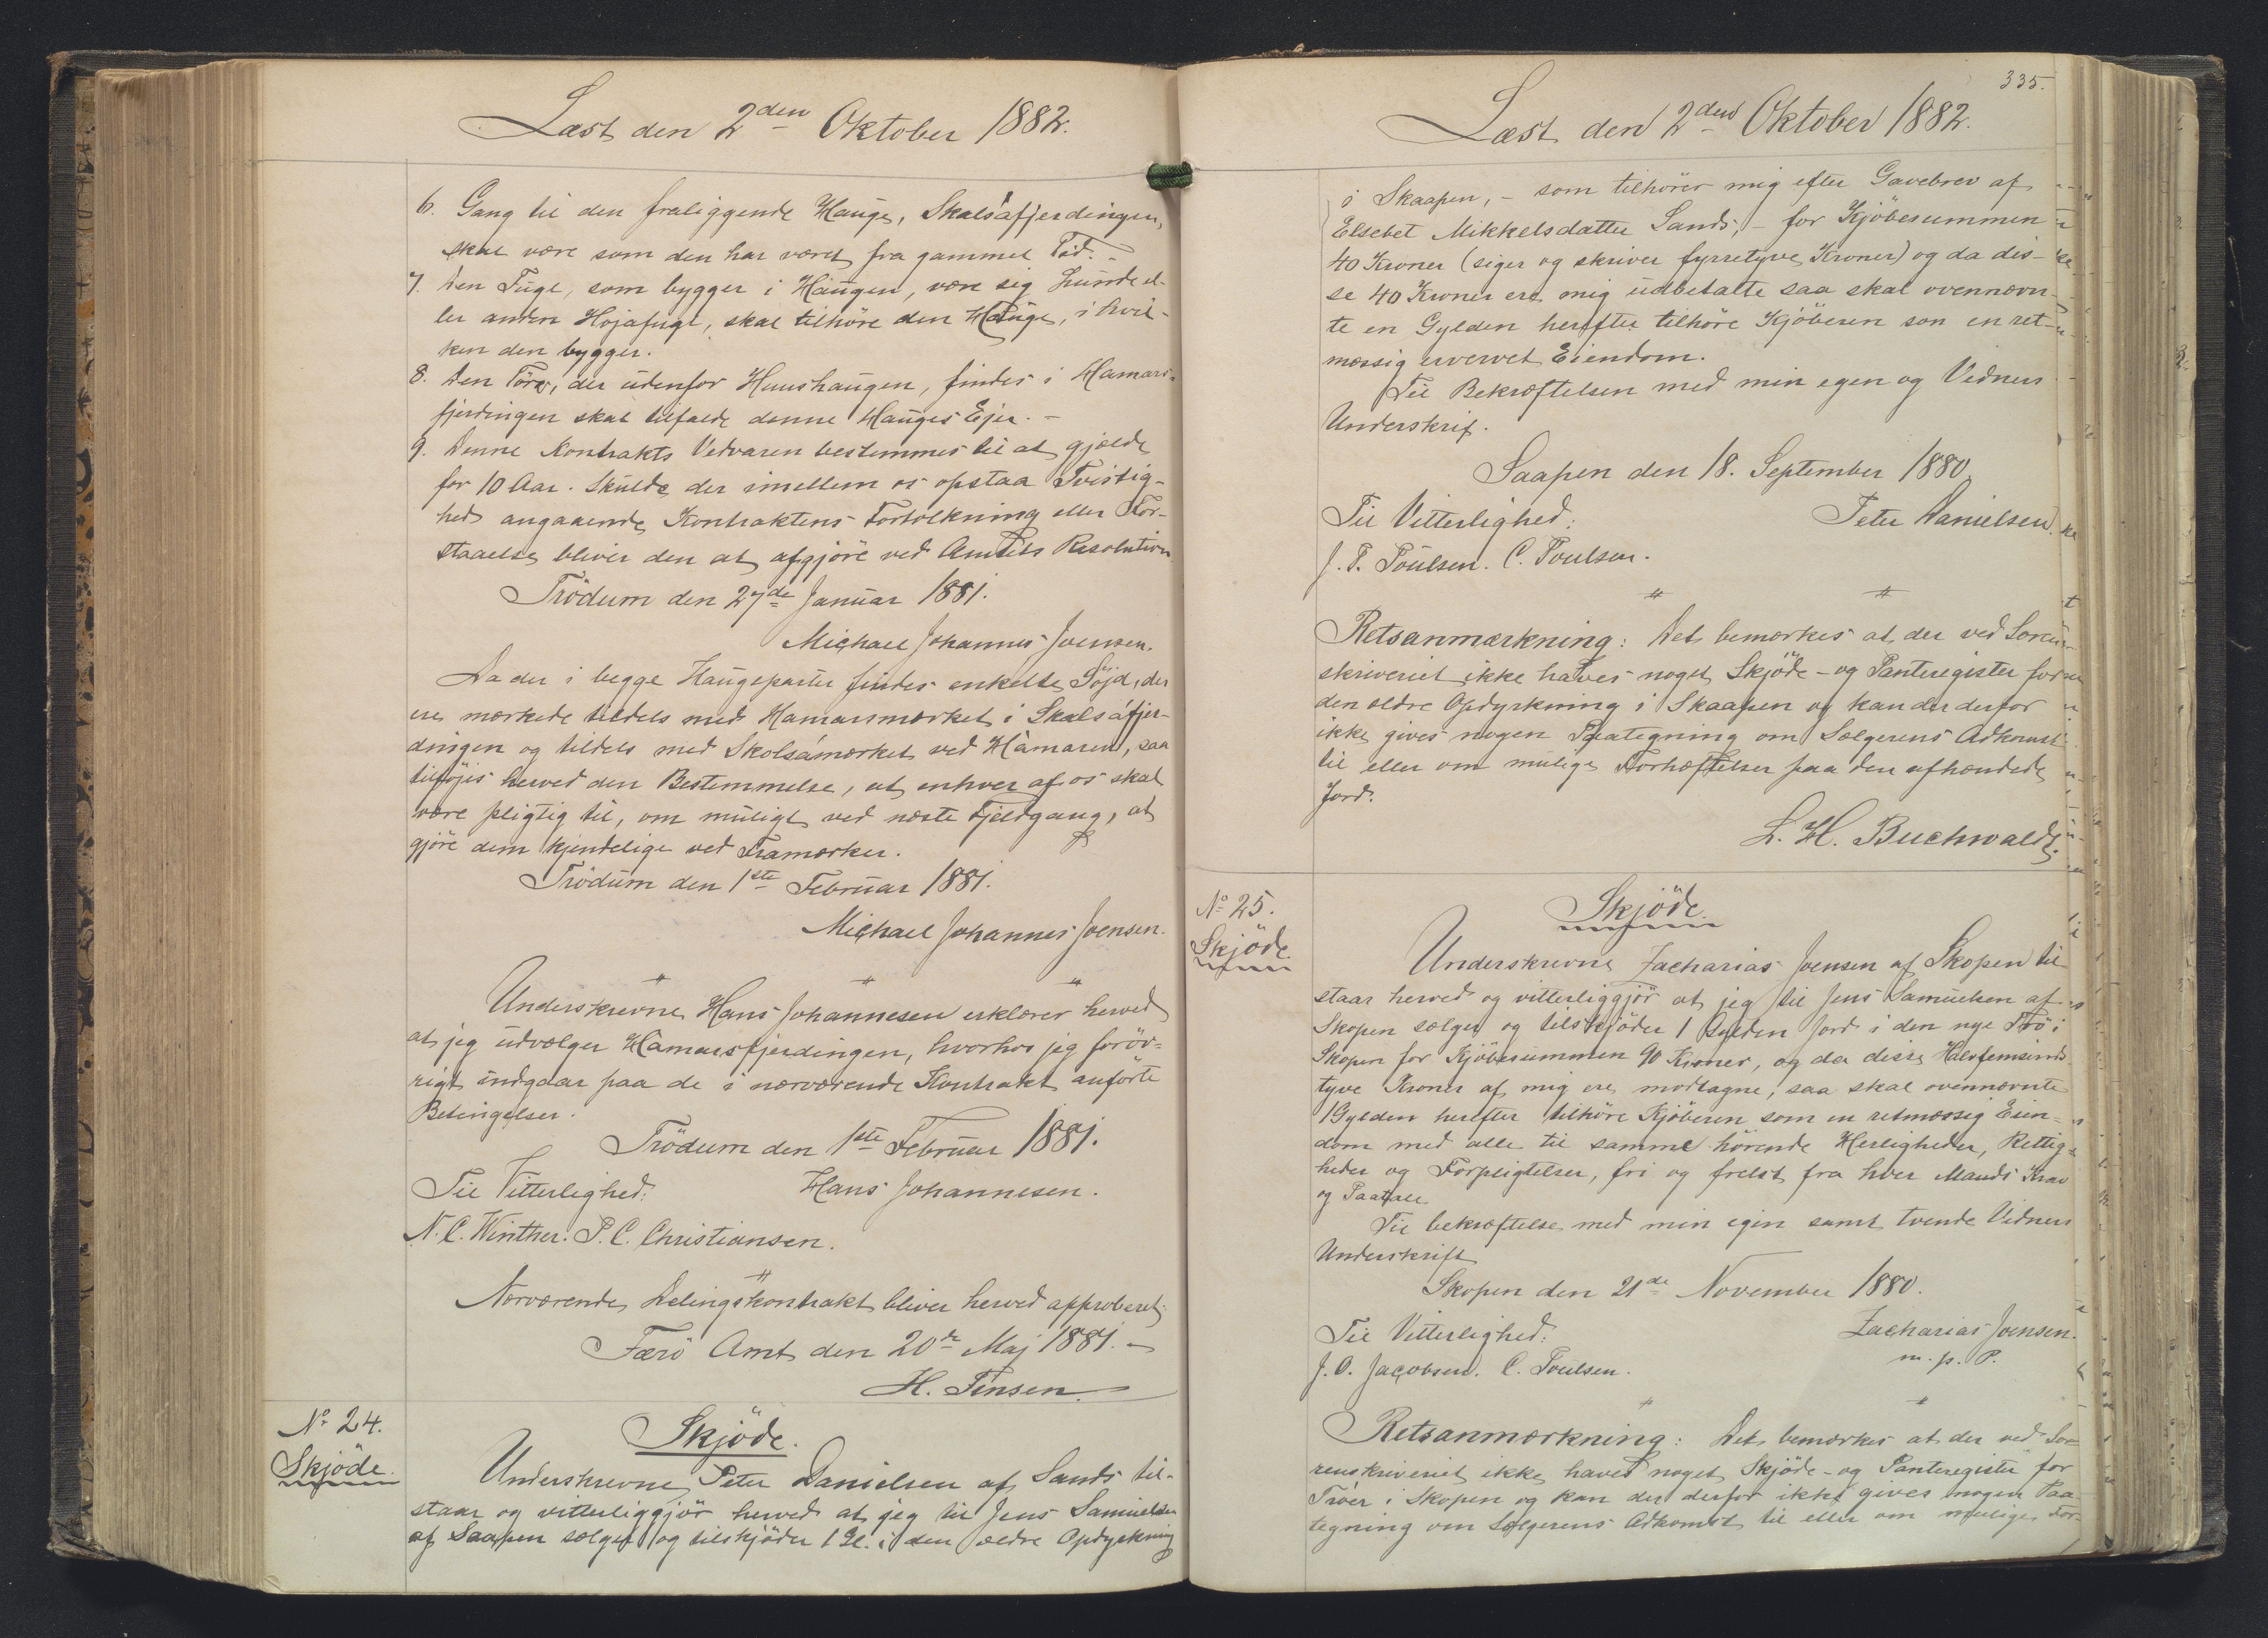 Læst den 2den Oktober 1882.
6. Gang til den fraliggende Hauge, Skalsáfjerdingen,
skal være som den har været fra gammel Tid. -
7. Den Fugl, som bygger i Haugen, være sig Lunde el-
ler anden Højafugl, skal tilhöre den Hauge, i hvil-
ken den bygger.
8. Den Törv, der udenfor Huushaugen, findes i Hamars-
fjerdingen skal tilfalde denne Hauges Ejer. -
9. Denne Kontrakts Vedvaren bestemmes til at gjælde
for 10 Aar. Skulde der imellem os opstaa Tvistig-
hed angaaende Kontraktens Fortolkning eller For-
staaelse bliver den at afgjöre ved Amtets Resolution
Trödum den 27de Januar 1881.
Michael Johannes Joensen.
Da der i begge Haugeparter findes enkelte Söjd, der
ere mærkede tildels med Hamarsmærket i Skalsáfjer-
dingen og tildels med Skolsámærket ved Hámaren, saa
tilföjes herved den Bestemmelse, at enhver af os skal
være pligtig til, om muligt ved næste Fjeldgang, at
gjöre dem kjendelige ved Framærker.
Trödum den 1ste Februar 1881.
Michael Johannes Joensen.
" " "
Underskrevne Hans Johannesen erklærer herved
at jeg udvælger Hámarsfjerdingen, hvorhos jeg foröv-
rigt indgaar paa de i nærværende Kontrakt anförte
Betingelser.
Trödum den 1ste Februar 1881.
Til Vitterlighed: Hans Johannesen.
N. C. Winther. P. C. Christiansen.
"
Nærværende Delingskontrakt bliver herved approberet.
Færö Amt den 20de Maj 1881. -
H. Finsen.
No 24.
Skjöde.
Skjöde.
Underskrevne Peter Danielsen af Sands til-
staar og vitterliggjör herved at jeg til Jens Samuelsen
af Saapen sælger og tilskjöder 1 Gl. i den ældre Opdyrkning
335.
Læst den 2den Oktober 1882.
i Skaapen, - som tilhörer mig efter Gavebrev af
Elsebet Mikkelsdatter Sands, - for Kjöbesummen
40 Kroner (siger og skriver fyrretyve Kroner) og da dis-
se 40 Kroner ere mig udbetalte saa skal ovennævn-
te en Gylden herefter tilhöre Kjöberen son en ret-
mæssig erverved Eiendom.
Til Bekræftelsen med min egen og Vidners
Underskrif.
Saapen den 18. September 1880
Til Vitterlighed: Peter Danielsen.
J. P. Poulsen. C. Poulsen.
" "
Retsanmærkning: Det bemærkes at der ved Soren-
skriveriet ikke haves noget Skjöde- og Panteregister for
den ældre Opdyrkning i Skaapen og kan der derfor
ikke gives nogen Paategning om Sælgerens Adkomst
til eller om mulige Forhæftelser paa den afhændede
Jord.
L. H. Buchwaldt.
No 25.
Skjöde.
Skjöde.
Underskrevne Zacharias Joensen af Skopen til-
staar herved og vitterliggjör at jeg til Jens Samuelsen af
Skopen sælger og tilskjöder 1 Gylden Jord i den nye Trö i
Skopen for Kjöbesummen 90 Kroner, og da disse Halvfemsinds-
tyve Kroner af mig ere modtagne, saa skal ovennævnte
1 Gylden herefter tilhöre Kjöberen som en retmæssig Eien-
dom med alle til samme hörende Herligheder, Rettig-
heder og Forpligtelser, fri og frelst fra hver Mands Krav
og Paatale
Til bekræftelse med min egen samt tvende Vidners
Underskrift
Skopen den 21de November 1880.
Til Vitterlighed: Zacharias Joensen.
J. O. Jacobsen. C. Poulsen. m. p. P.
" "
Retsanmærkning: Det bemærkes at der ved So-
renskriveriet ikke haves noget Skjöde- og Panteregister for
Tröer i Skopen og kan der derfor ikke gives nogen Paa-
tegning om Sælgerens Adkomst til eller om mulige For-